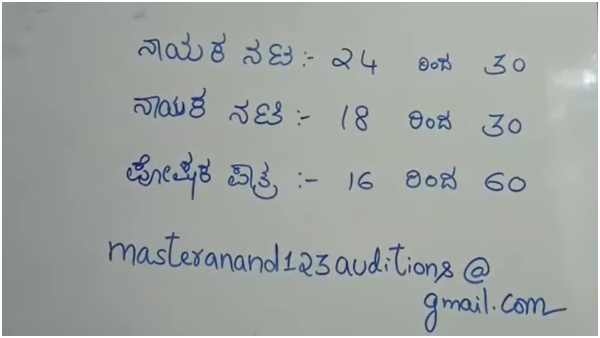 ನಾಯಕ ನಟ :- 24 ರಿಂದ 30
ನಾಯಕ ನಟಿ :- 18 ರಿಂದ 30
ಪೋಷಕ ಪಾತ್ರ :- 16 ರಿಂದ 60
masteranand123auditions@
gmail.com